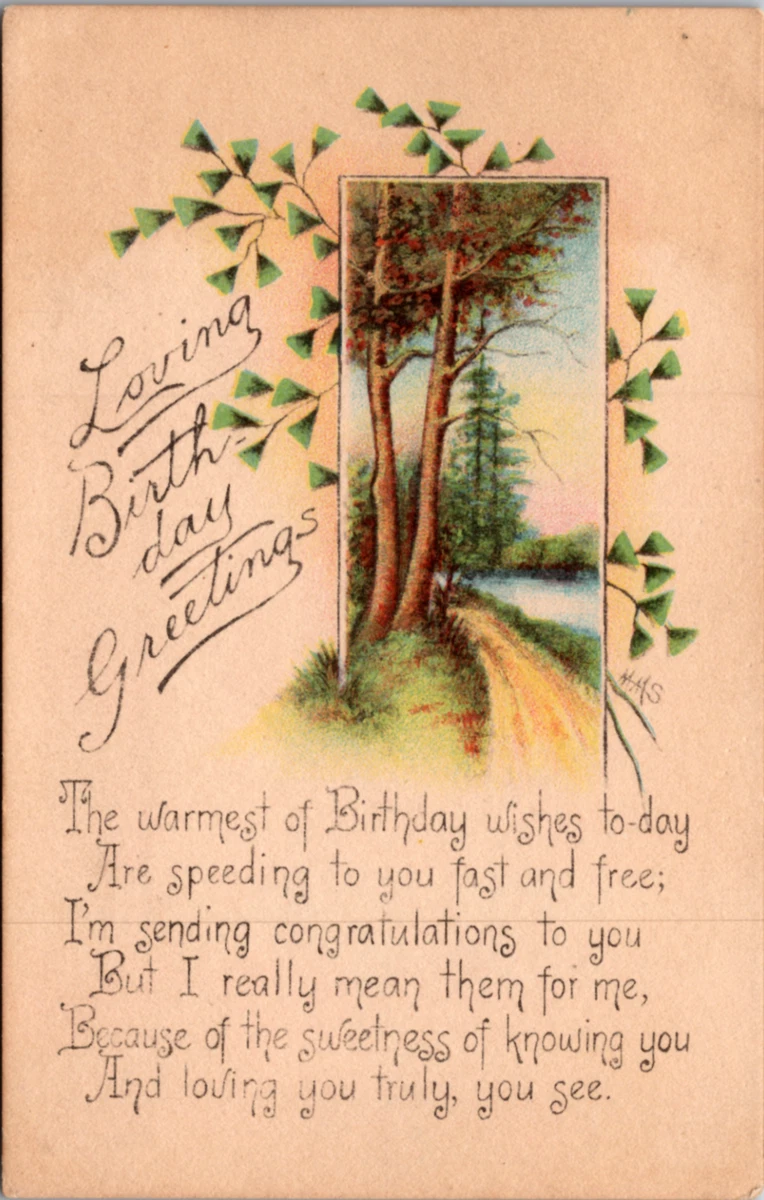 Loving
Birth-
day
Greetings
M.M.S
The warmest of Birthday wishes to-day
Are speeding to you fast and free;
I'm sending congratulations to you
But I really mean them for me,
Because of the sweetness of knowing you
And loving you truly, you see.